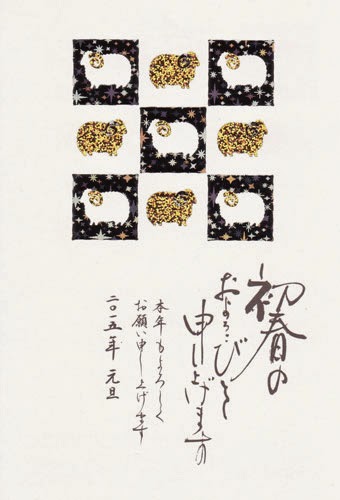 初春の
およろこびを
申し上げます
本年もよろしく
お願い申し上げます
二〇一五年 元旦